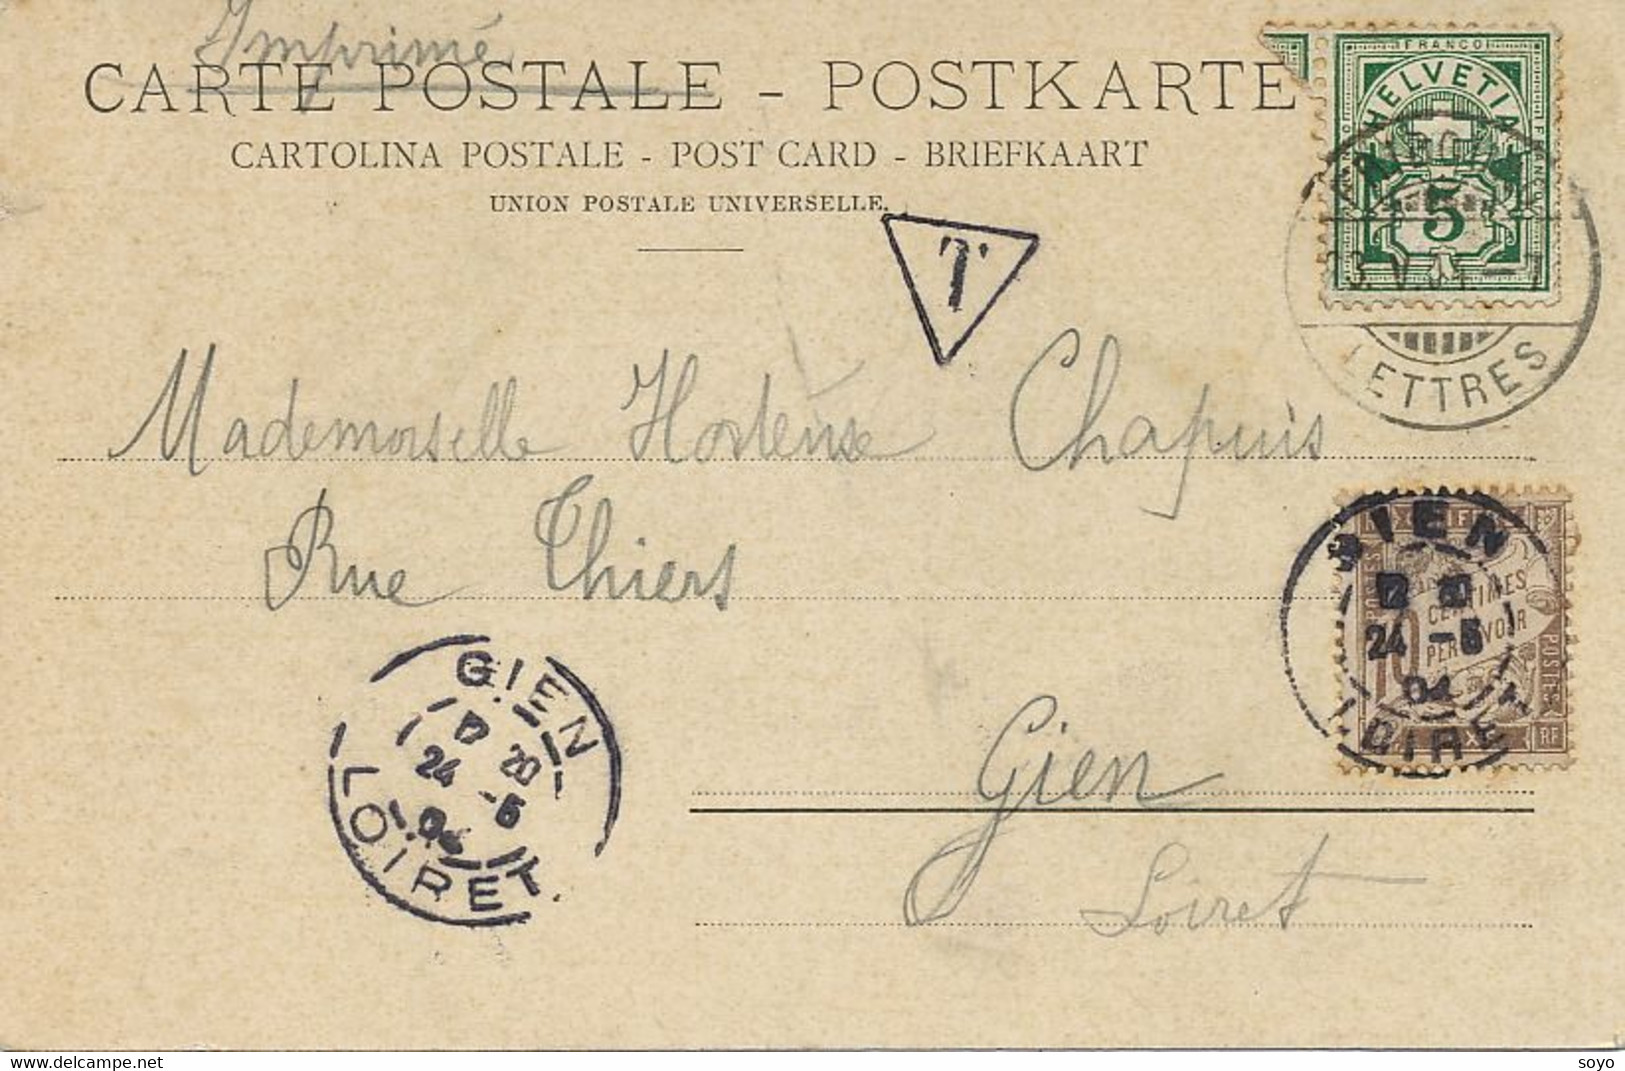 Imprimé
CARTE POSTALE - POSTKARTE
CARTOLINA POSTALE - POST CARD - BRIEFKAART
UNION POSTALE UNIVERSELLE.
T
FRANCO
HELVETIA
FRANCO
5
LETTRES
Mademoiselle Hortense Chapuis
Rue Thiers
Gien
Loiret
GIEN
20
24 -5
04
LOIRET
GIEN
CENTIMES
10
PERCEVOIR
POSTES
24 -5
04
LOIRET
RF
delcampe.net
soyo